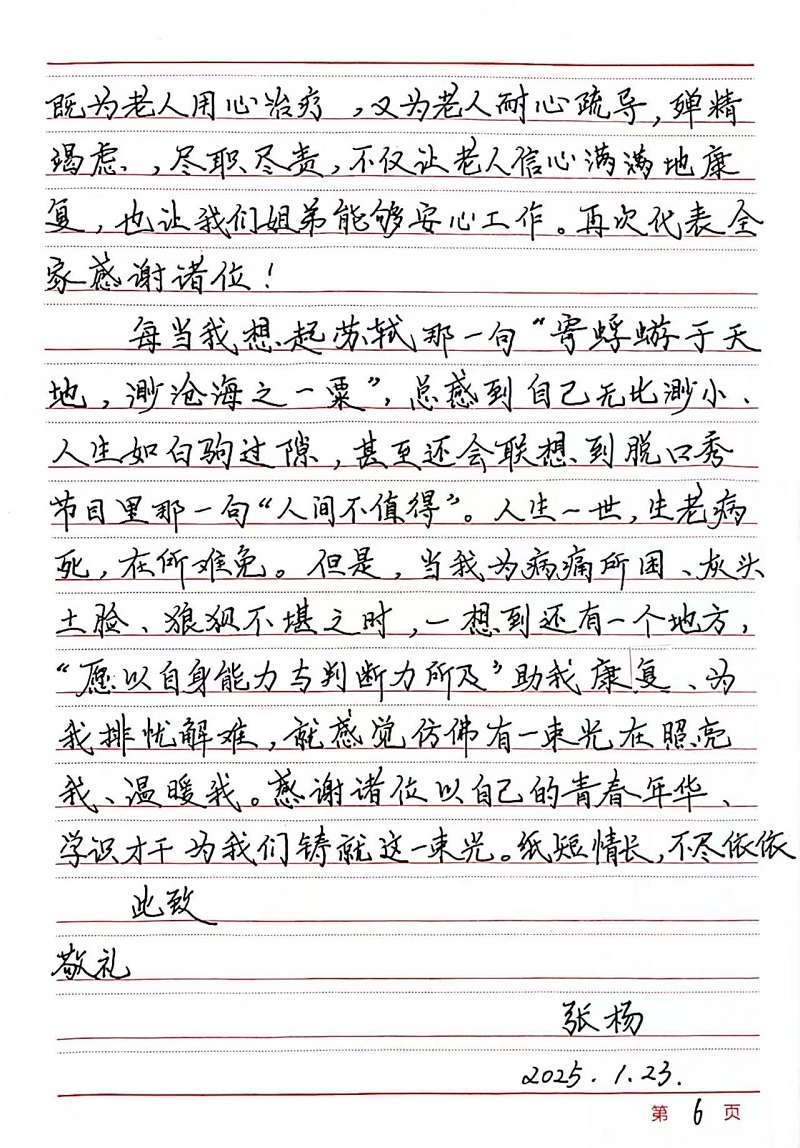 既为老人用心治疗，又为老人耐心疏导，殚精
竭虑，尽职尽责，不仅让老人信心满满地康
复，也让我们姐弟能够安心工作。再次代表全
家感谢诸位！
每当我想起苏轼那一句“寄蜉蝣于天
地，渺沧海之一粟”，总感到自己无比渺小、
人生如白驹过隙，甚至还会联想到脱口秀
节目里那一句“人间不值得”。人生一世，生老病
死，在所难免。但是，当我为病痛所困、灰头
土脸、狼狈不堪之时，一想到还有一个地方，
“愿以自身能力与判断力所及”助我康复、为
我排忧解难，就感觉仿佛有一束光在照亮
我、温暖我。感谢诸位以自己的青春年华、
学识才干为我们铸就这一束光。纸短情长，不尽依依
此致
敬礼
张杨
2025.1.23.
第 6 页